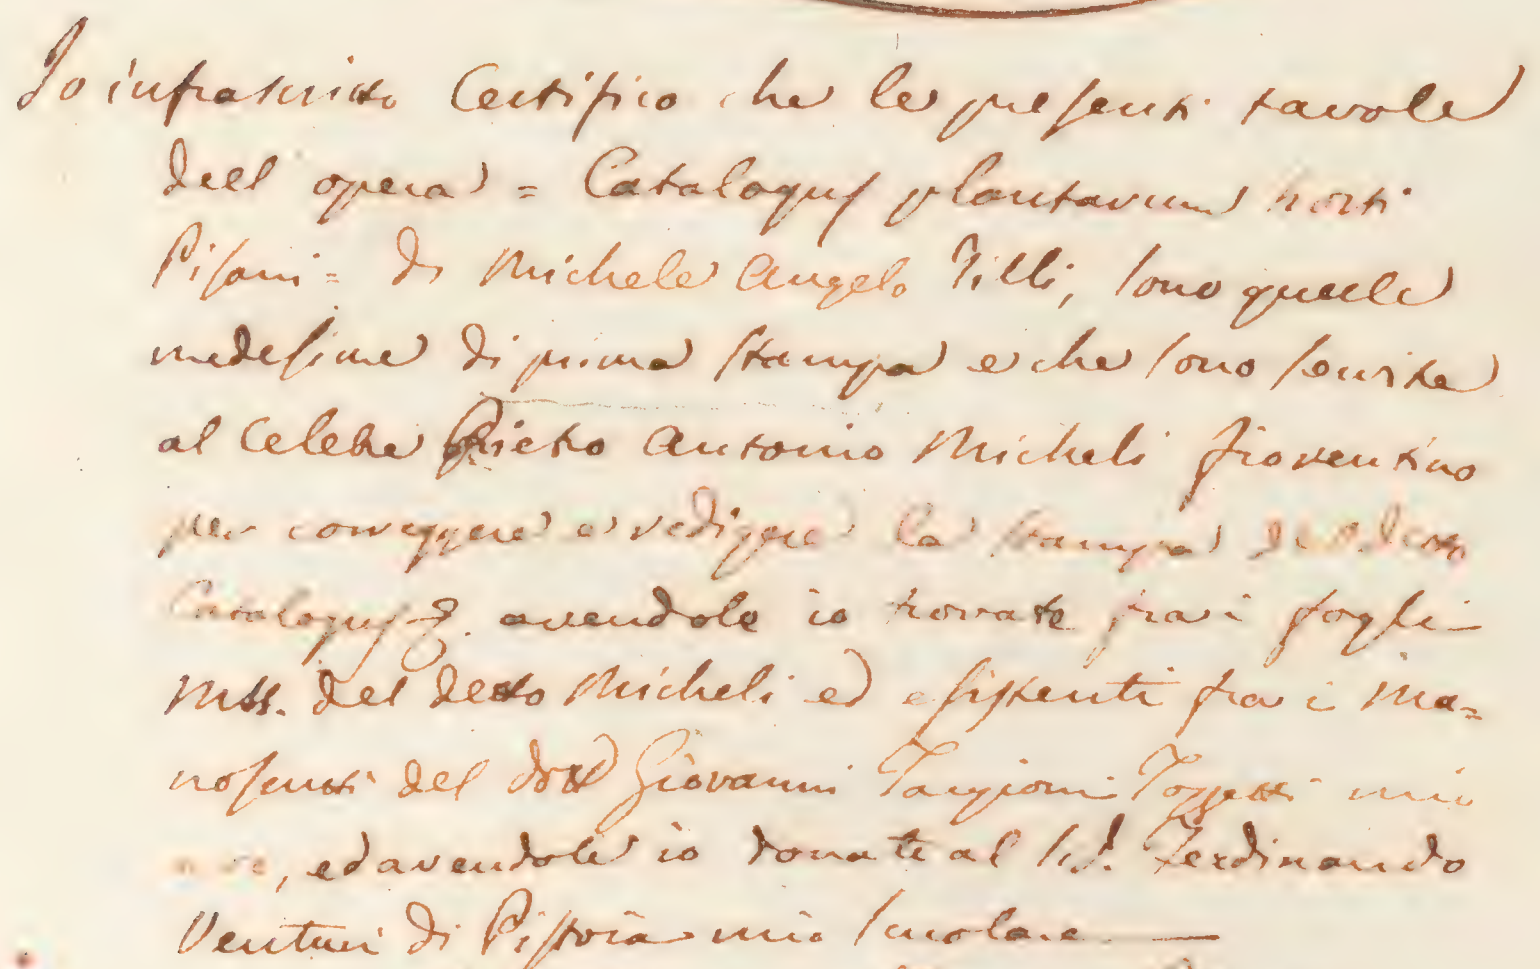 Io infrascritto Certifico che le presenti tavole
dell opera = Catalogus plantarum horti
Pisani = di Michele Angelo Tilli, sono quelle
medesime di prima stampa e che sono servite
al celebre Pietro Antonio Micheli fiorentino
per correggere e redigere la stampa del detto
Catalogus &. avendole io trovate fra i fogli
Mss. del detto Micheli ed esistenti fra i Ma=
noscritti del dott Giovanni Targioni Tozzetti mio
, ed avendole io donate al Sid. Ferdinando
Venturi di Pistoia mio scolare